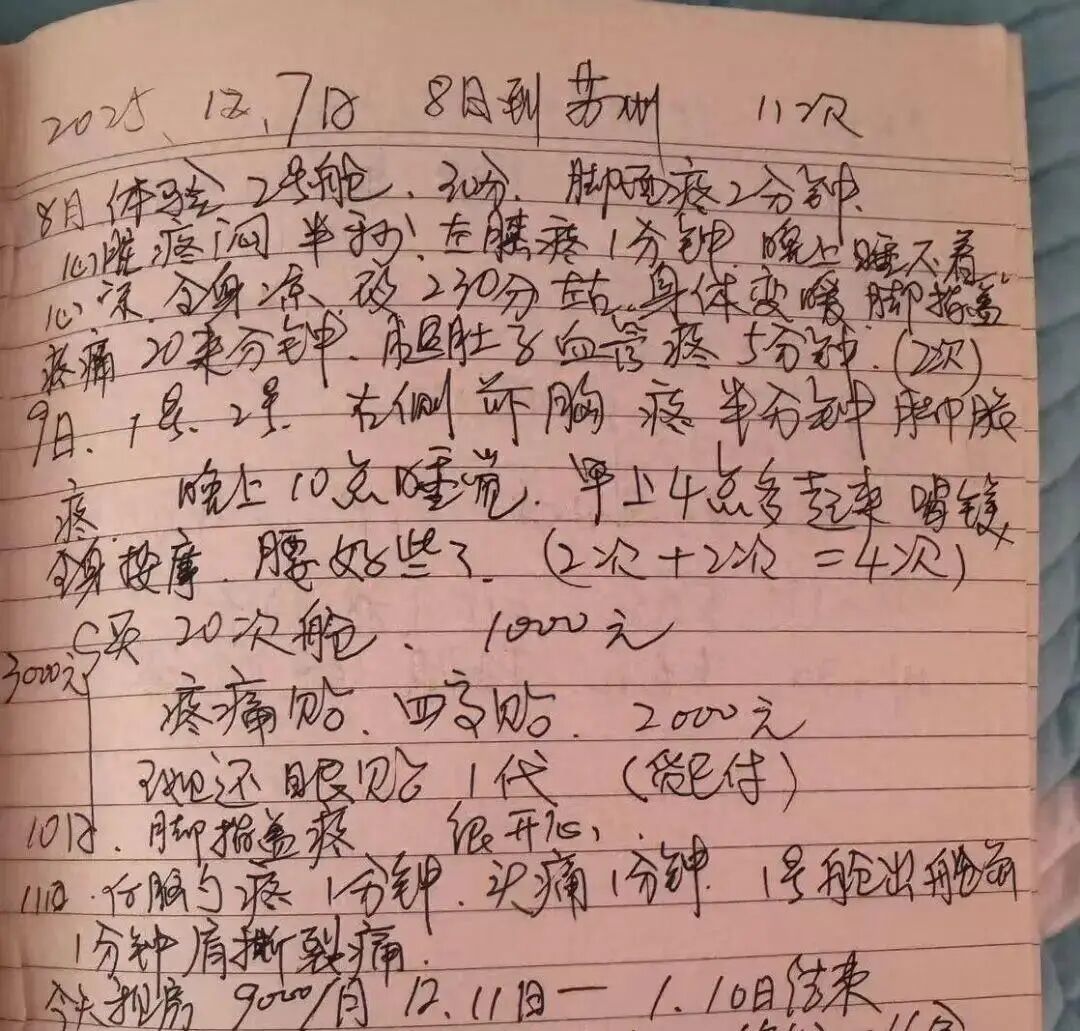 2025、12、7日 8日到苏州 11次
8月体验2号舱、30分、脚面疼2分钟、
心脏疼闷半秒、左膝疼1分钟、晚上睡不着、
心凉、全身凉、夜230分左右、身体变暖脚指盖
疼痛20来分钟、腿肚子血管疼5分钟、(2次)
9日、1号、2号、右侧前胸疼半分钟脚脖
疼 晚上10点睡觉、早上4点多起来喝镁
全身按摩、腰好些了、(2次+2次=4次)
买20次舱、1000元
3000元
疼痛贴、四高贴、2000元
还眼贴1代(货已付)
10日、脚指盖疼 很开心、
11日、后脑勺疼1分钟、头痛1分钟、1号舱出舱前
1分钟肩撕裂痛、
今天租房9000/月 12.11日—1.10日结束